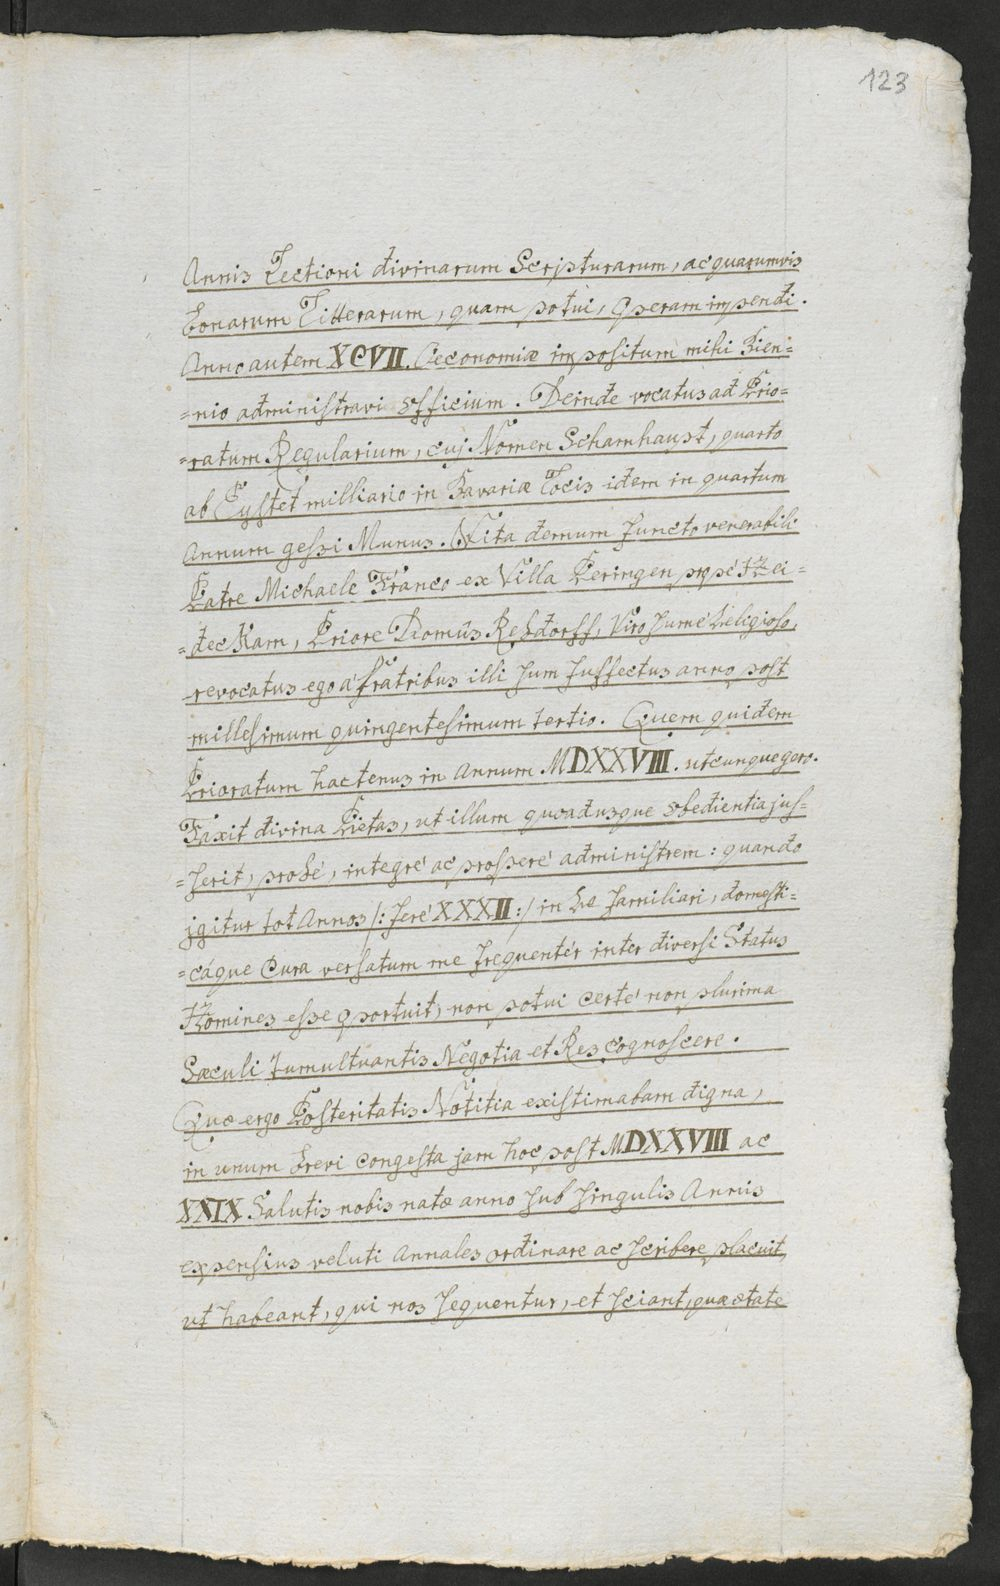 123
Annis Lectioni divinarum Scripturarum, ac quarumvis
bonarum Litterarum, quam potui, Operam impendi.
Anno autem XCVII. Oeconomiæ impositum mihi Bien=
=nio administravi officium. Deinde vocatus ad Prio=
=ratum Regularium, cuj Nomen Schamhaupt, quarto
ab Eystet milliario in Bavariæ Locis idem in quartum
Annum gessi Munus. Vita demum functo venerabili
Patre Michaele Franco ex Villa Peringen propè Hei=
=deckam, Priore Domûs Rebdorff, Viro sumè Religioso,
revocatus ego á fratribus illi sum suffectus anno post
millesimum quingentesimum tertio. Quem quidem
Prioratum hactenus in annum MDXXVIII. utcunque gero.
Faxit divina Pietas, ut illum quoadusque obedientia jus=
=serit, probé, integré ac prosperé administrem: quando
igitur tot Annos /: feré XXXII :/ in Re familiari, domesti=
=cáque Cura versatum me frequentér inter diversi Status
Homines esse oportuit, non potui certé non plurima
Sæculi tumultuantis Negotia et Res cognoscere.
Quæ ergo Posteritatis Notitia existimabam digna,
in unum brevi congesta jam hoc post MDXXVIII ac
XXIX Salutis nobis natæ anno sub singulis Annis
expensius veluti Annales ordinare ac scribere placuit,
ut habeant, qui nos sequentur, et sciant, qua ætate